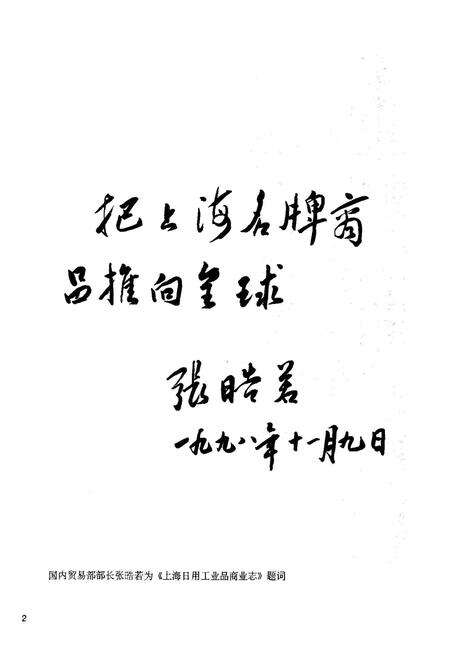 把上海名牌商
品推向全球
张皓若
一九九八年十一月九日
国内贸易部部长张皓若为《上海日用工业品商业志》题词
2